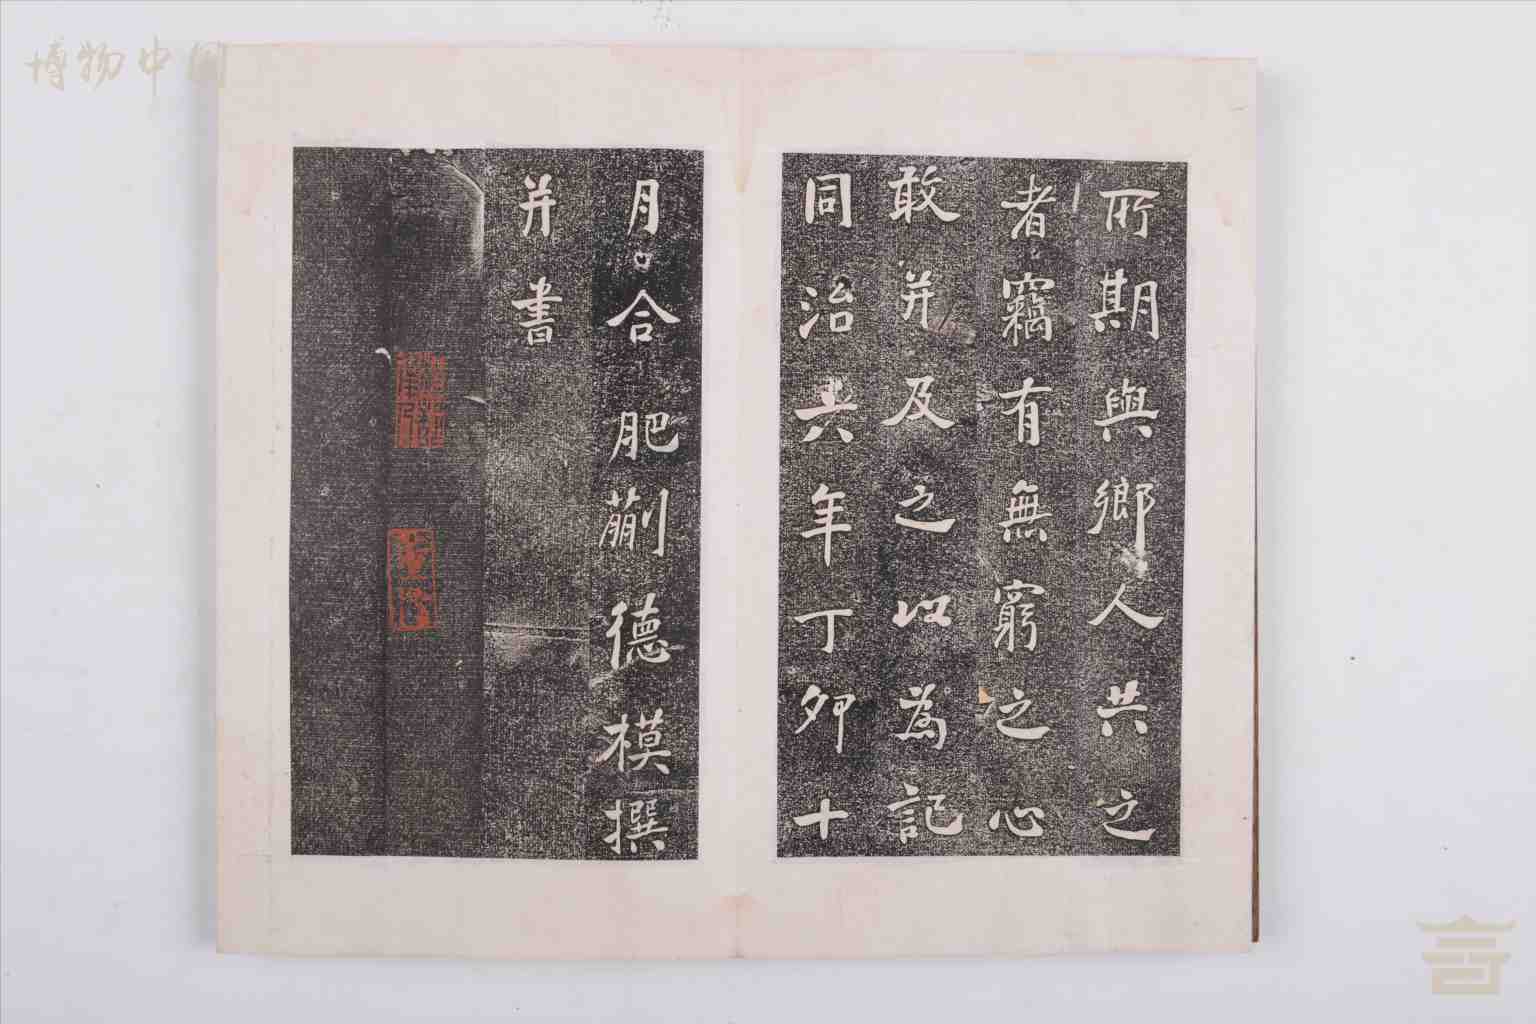 所期與鄉人共之
者竊有無窮之心
敢并及之以為記
同治六年丁卯十
月合肥蒯德模撰
并書
博物中国